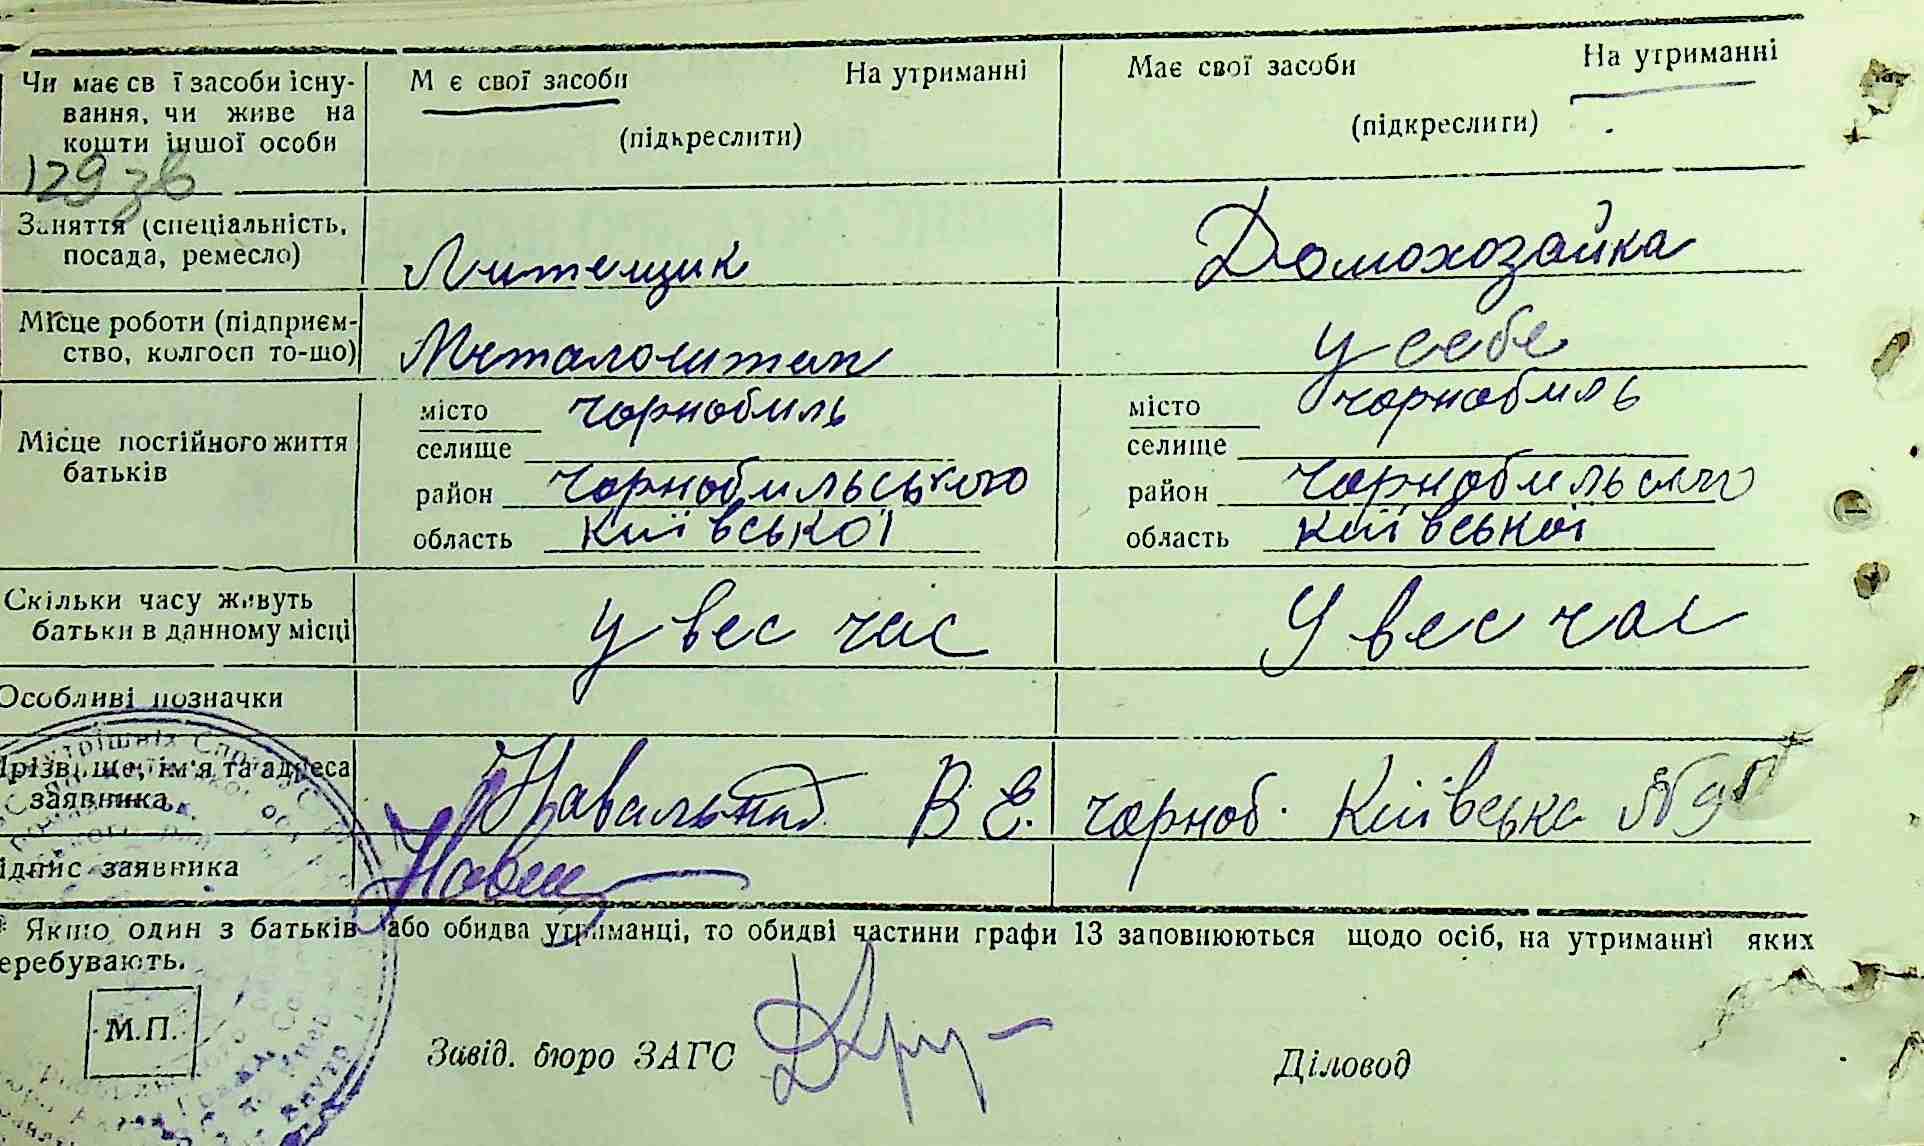 Чи має св ї засоби існу- М є свої засоби На утриманні Має свої засоби На утриманні
вання, чи живе на (підкреслити) (підкреслити)
кошти іншої особи
129 зв
Заняття (спеціальність, Литещик Домохозайка
посада, ремесло)
Місце роботи (підприєм- Металолитеп у себе
ство, колгосп то-що)
Місце постійного життя батьків місто Чорнобиль місто Чорнобиль
селище селище
район Чорнобильського район Чорнобильського
область Київської область Київської
Скільки часу живуть У вес час У вес час
батьки в данному місці
Особливі позначки
Прізвище, ім'я та адреса Навальний В Е. Чорноб. Київська №
заявника
ідпис заявника Навал
* Якщо один з батьків або обидва утриманці, то обидві частини графи 13 заповнюються щодо осіб, на утриманні яких
еребувають.
М.П.
Завід. бюро ЗАГС Діловод